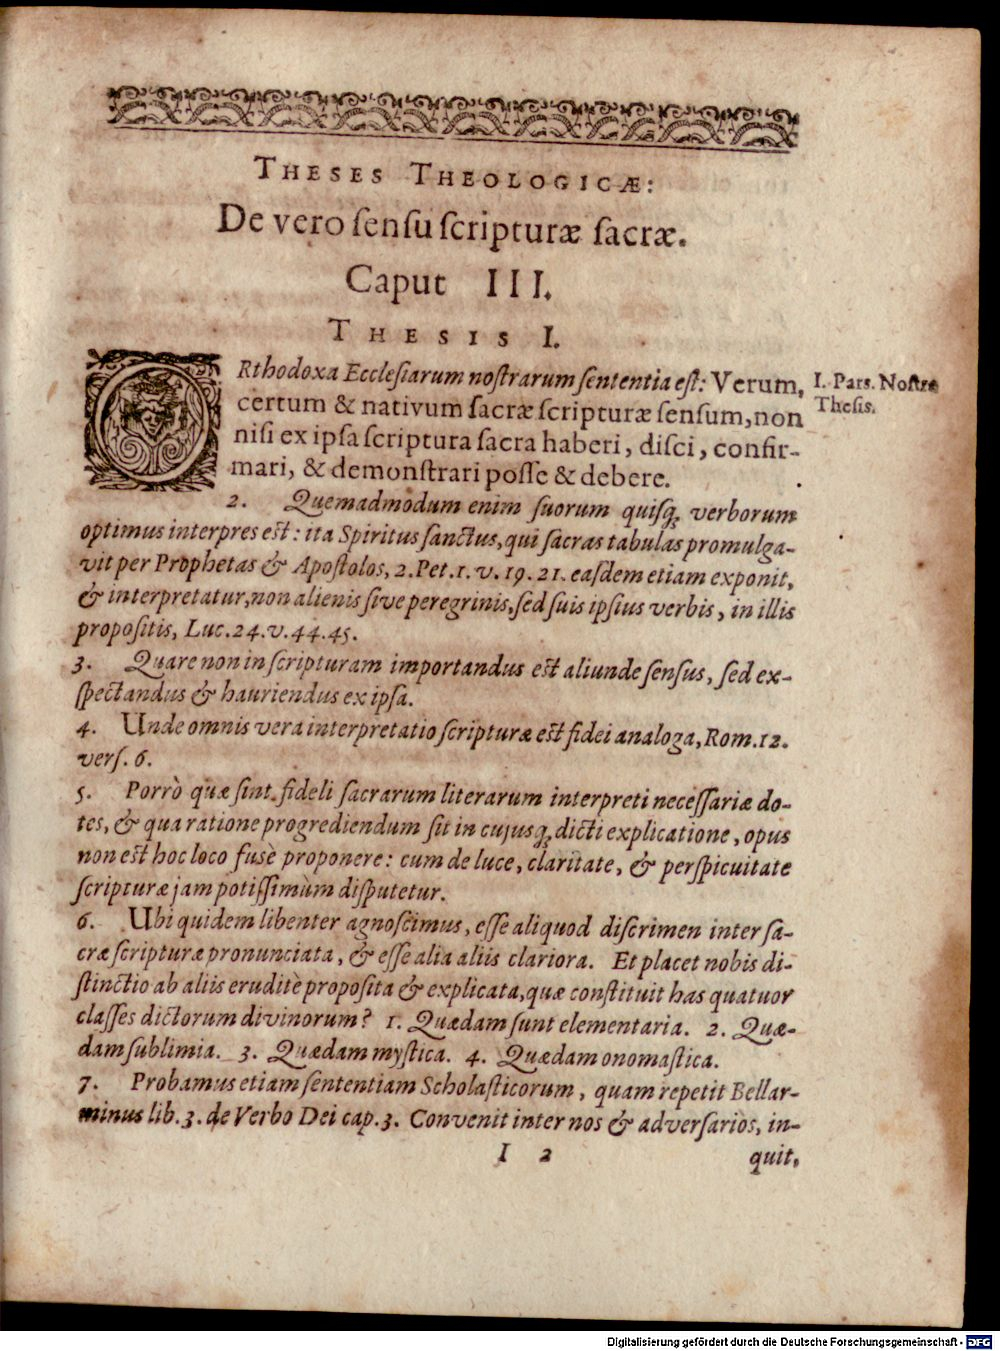 THESES THEOLOGICÆ:
De vero ſenſu ſcripturæ ſacræ.
Caput III.
THESIS I.
ORthodoxa Eccleſiarum noſtrarum ſententia eſt: Verum,
certum & nativum ſacræ ſcripturæ ſenſum, non
niſi ex ipſa ſcriptura ſacra haberi, diſci, confir-
mari, & demonſtrari poſſe & debere.
I. Pars. Noſtræ
Theſis.
2. Quemadmodum enim ſuorum quiſq; verborum
optimus interpres eſt: ita Spiritus ſanctus, qui ſacras tabulas promulga-
vit per Prophetas & Apoſtolos, 2. Pet. 1. v. 19. 21. eaſdem etiam exponit,
& interpretatur, non alienis ſive peregrinis, ſed ſuis ipſius verbis, in illis
propoſitis, Luc. 24. v. 44. 45.
3. Quare non in ſcripturam importandus eſt aliunde ſenſus, ſed ex-
ſpectandus & hauriendus ex ipſa.
4. Unde omnis vera interpretatio ſcripturæ eſt fidei analoga, Rom. 12.
verſ. 6.
5. Porrò quæ ſint fideli ſacrarum literarum interpreti neceſſariæ do-
tes, & qua ratione progrediendum ſit in cujusq; dicti explicatione, opus
non eſt hoc loco fusè proponere: cum de luce, claritate, & perſpicuitate
ſcripturæ jam potiſſimùm diſputetur.
6. Ubi quidem libenter agnoſcimus, eſſe aliquod diſcrimen inter ſa-
cræ ſcripturæ pronunciata, & eſſe alia aliis clariora. Et placet nobis di-
ſtinctio ab aliis eruditè propoſita & explicata, quæ conſtituit has quatuor
claſſes dictorum divinorum? 1. Quædam ſunt elementaria. 2. Quæ-
dam ſublimia. 3. Quædam myſtica. 4. Quædam onomaſtica.
7. Probamus etiam ſententiam Scholaſticorum, quam repetit Bellar-
minus lib. 3. de Verbo Dei cap. 3. Convenit inter nos & adverſarios, in-
I 2
quit,
Digitalisierung gefördert durch die Deutsche Forschungsgemeinschaft - DFG